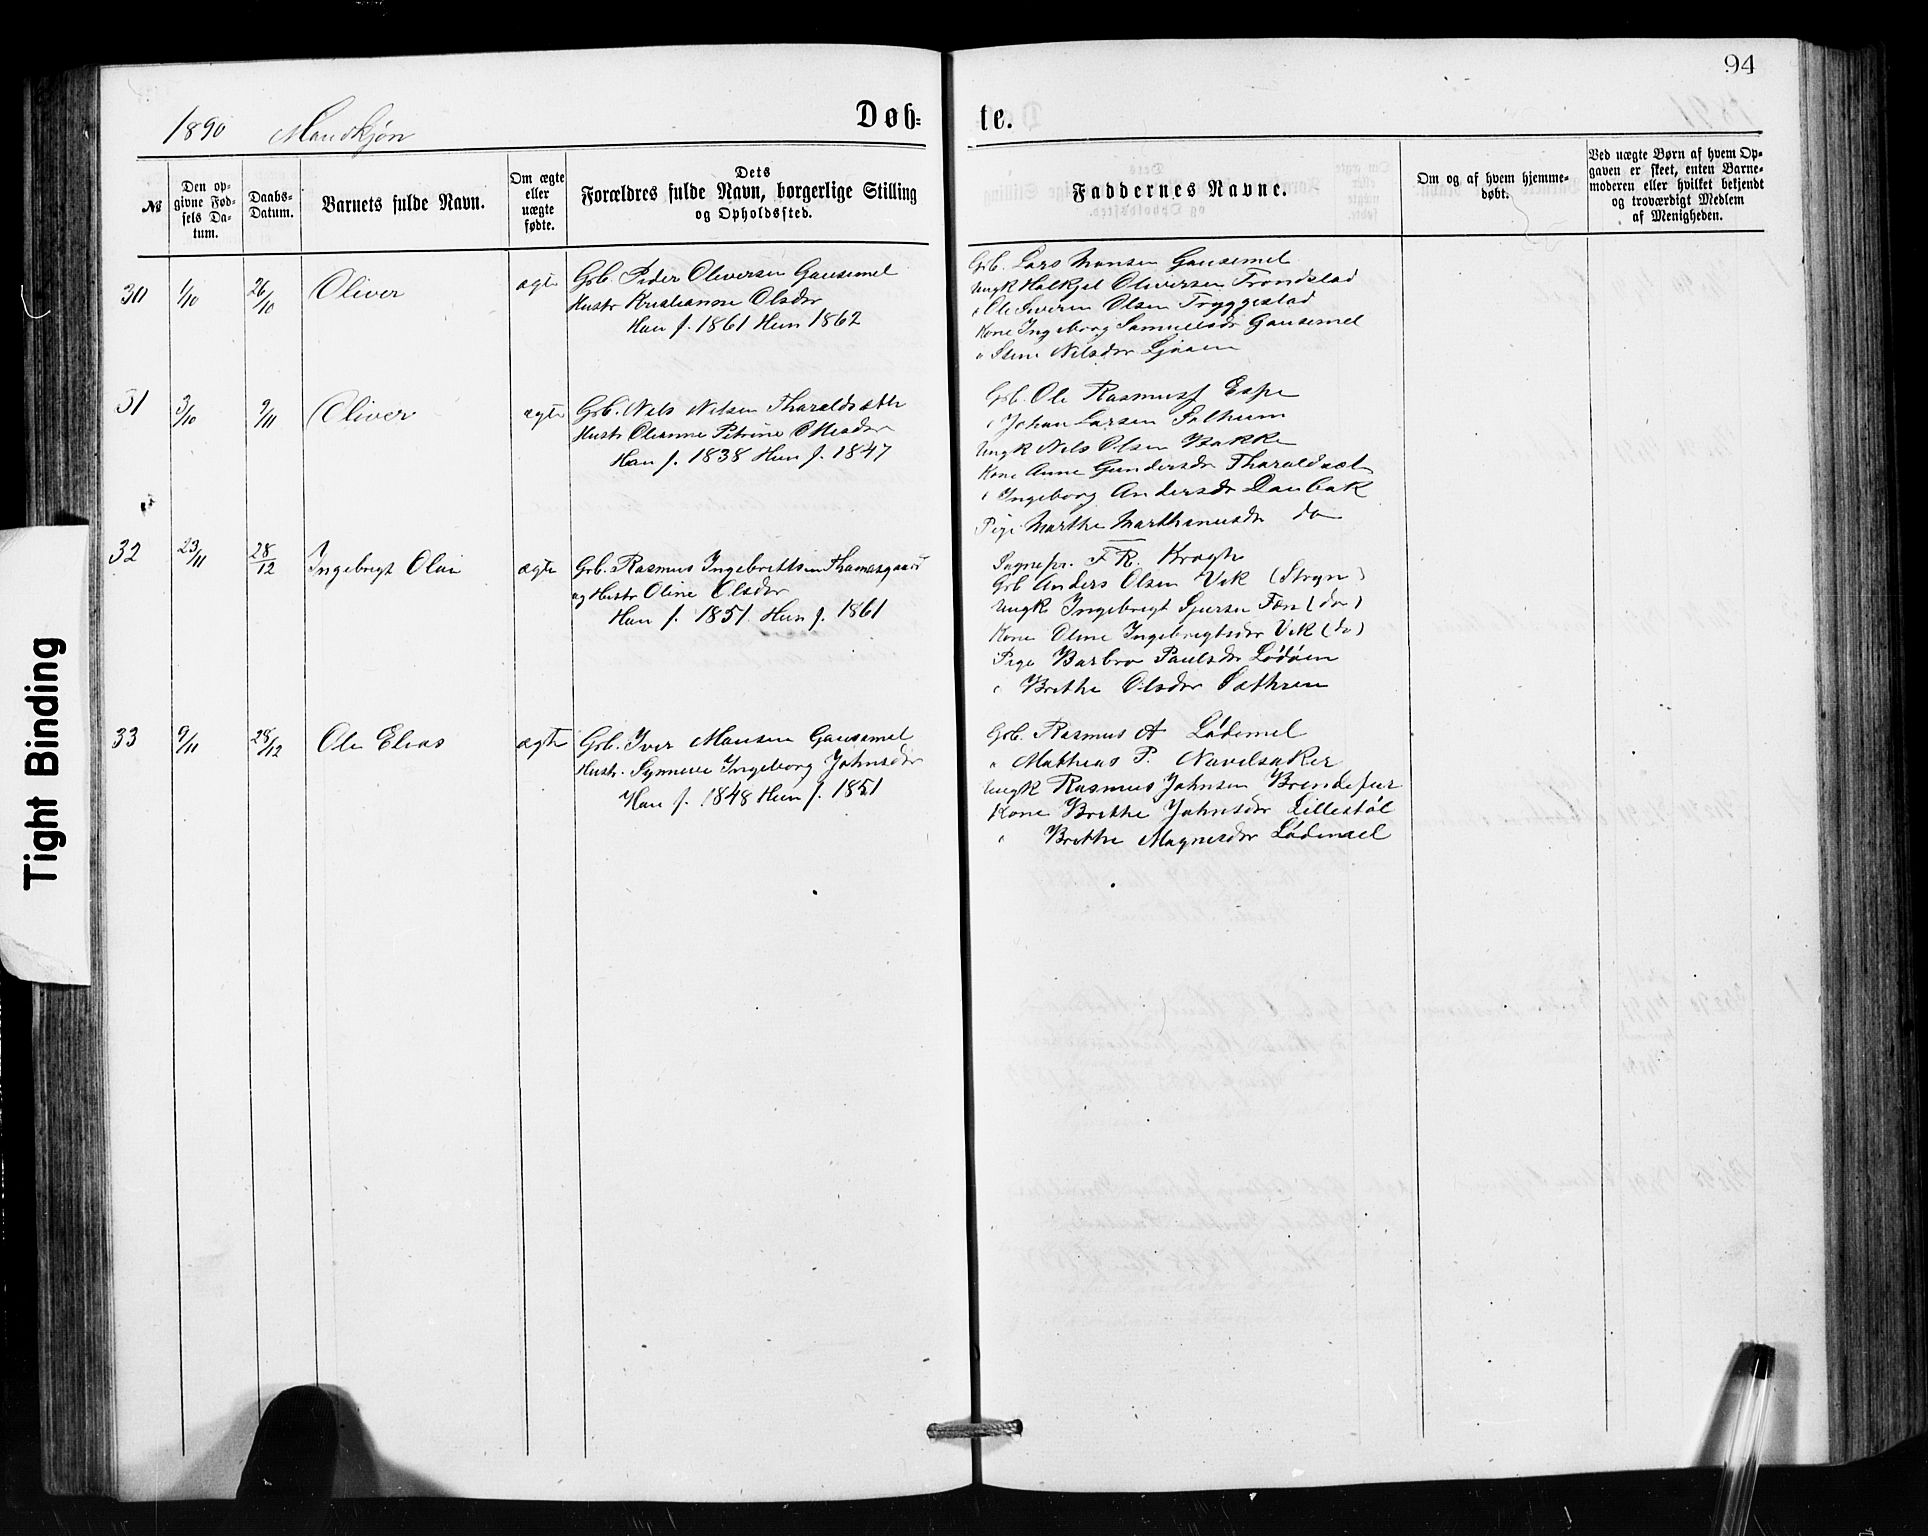 94
1890 Mandkjøn
Døb-
te.
№
Den op-
givne Fød-
sels Da-
tum.
Daabs-
Datum.
Barnets fulde Navn.
Om ægte
eller
uægte
fødte.
Dets
Forældres fulde Navn, borgerlige Stilling
og Opholdssted.
Faddernes Navne.
Om og af hvem hjemme-
døbt.
Ved uægte Børn af hvem Op-
gaven er skeet, enten Barne-
moderen eller hvilket bekjendt
og troværdigt Medlem
af Menigheden.
30 1/10 26/10 Oliver ægte
Grb. Peder Oliversen Gausemel
Hustr Kristianne Olsdr
Han f. 1861 Hun 1862
Grb. Lars Monsen Gausemel
Ungk Halkjel Oliversen Trondstad
" Ole Severin Olsen Tryggestad
Kone Ingeborg Samuelsdr Gausemel
" Stine Nilsdr
31 3/10 9/11 Oliver ægte
Grb. Nils Nilsen Tharaldsæth
Hustr Olianne Petrine Ottesdr
Han f. 1838 Hun f. 1847
Grb. Ole Rasmuss Espe
" Johan Larsen Solheim
Ungk Nils Olsen Bakke
Kone Anne Gundersdr Tharaldsæt
" Ingeborg Andersdr Raubak
Pige Marthe Marthinusdr do
32 23/11 28/12 Ingebrigt Olai ægte
Grb. Rasmus Ingebrittsen Thomasgaard
og Hustr Oline Olsdr
Han f. 1851 Hun f. 1861
Sognepr. F R. Krogh
Grb Anders Olsen Vik (Stryn)
Ungk Ingebrigt Sjursen (do)
Kone Oline Ingebrigtsdr Vik (do)
Pige Barbro Paulsdr Lødøen
" Brithe Olsdr Sæthren
33 9/11 28/12 Ole Elias ægte
Grb. Iver Monsen Gausemel
Hustr. Synneve Ingeborg Johnsdr
Han f. 1848 Hun f. 1851
Grb. Rasmus A Lødemel
" Mathias P. Navelsaker
Ungk Rasmus Johnsen Brendefur
Kone Brithe Johnsdr Lillestøl
" Brithe Magnesdr Lødemel
Tight Binding